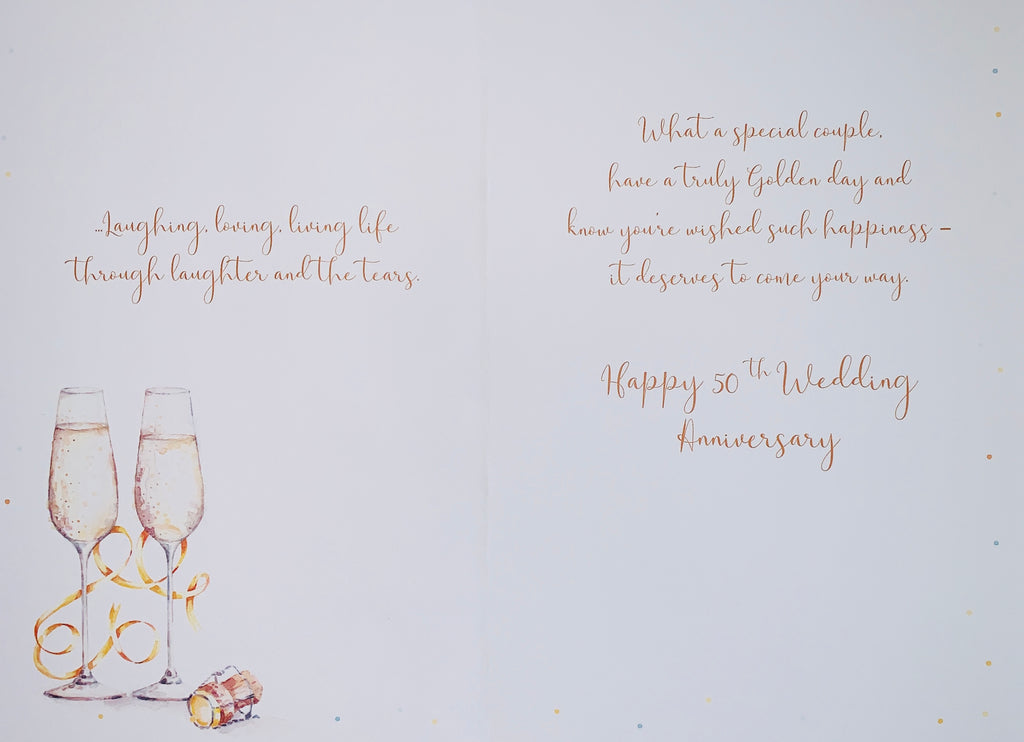 ...Laughing, loving, living life
through laughter and the tears.
What a special couple,
have a truly Golden day and
know you're wished such happiness –
it deserves to come your way.
Happy 50th Wedding
Anniversary